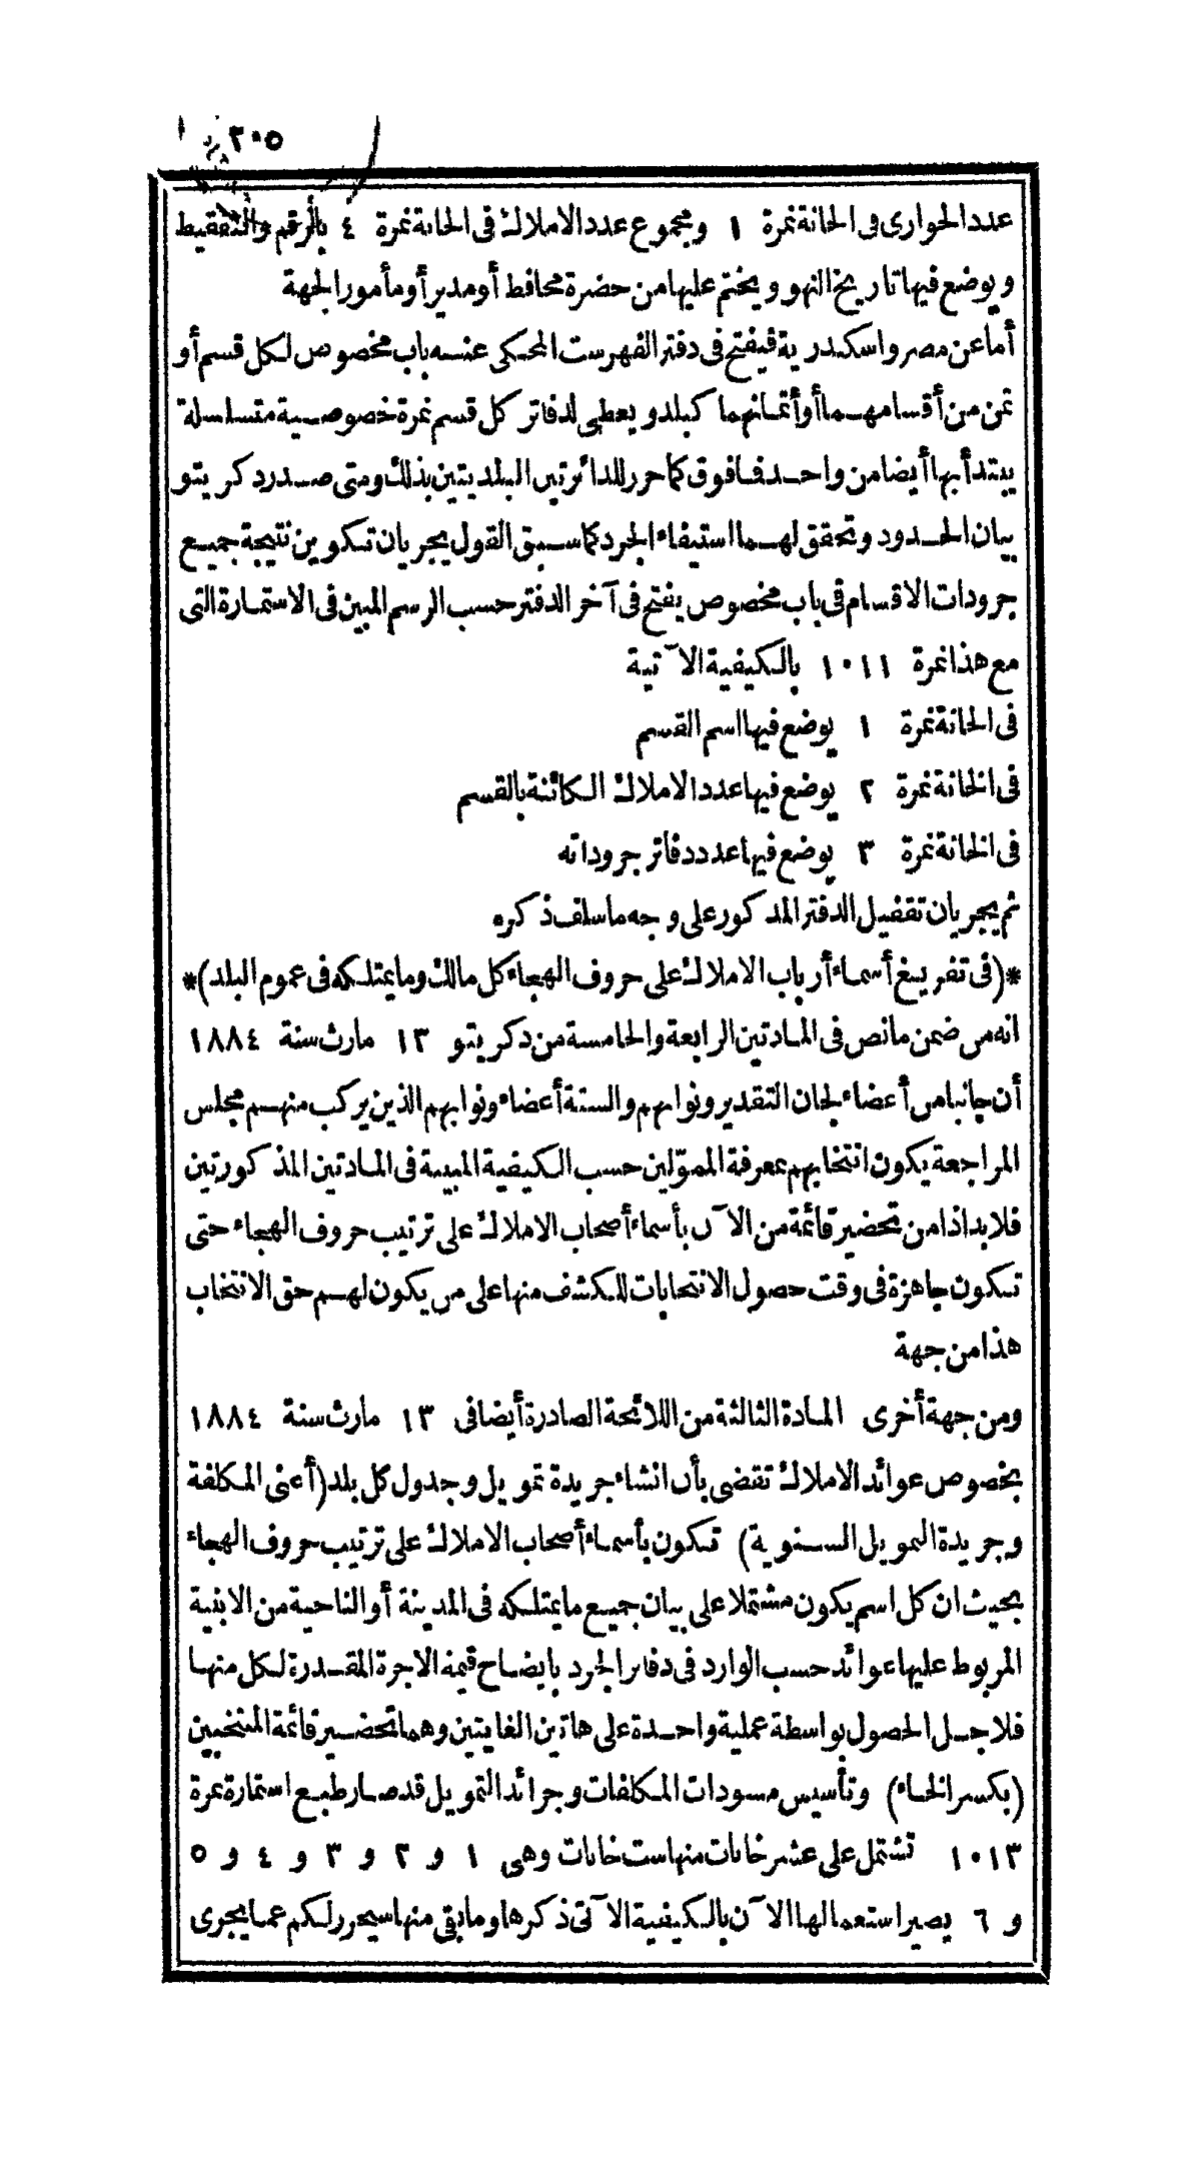 ٣٠٥
عدد الحوارى فى الخانة نمرة ١ ومجموع عدد الاملاك فى الخانة نمرة ٤ بالرقم والتفقيط
ويوضع فيها تاريخ النهو ويختم عليها من حضرة محافظ أو مدير أو مأمور الجهة
أما عن مصر واسكندرية فيفتح فى دفتر الفهرست المحكى عنه باب مخصوص لكل قسم أو
ثمن من أقسامهما أو أثمانهما كبلد ويعطى لدفاتر كل قسم نمرة خصوصية متسلسلة
يبتدأ بها أيضا من واحد فافوق كما حرر للدائرتين البلديتين بذلك ومتى صدر دكريتو
بيان الحدود وتحقق لهما استيفاء الجرد كما سبق القول يجريان تكوين نتيجة جميع
جرودات الاقسام فى باب مخصوص يفتح فى آخر الدفتر حسب الرسم المبين فى الاستمارة التى
مع هذا نمرة ١٠١١ بالكيفية الآتية
فى الخانة نمرة ١ يوضع فيها اسم القسم
فى الخانة نمرة ٢ يوضع فيها عدد الاملاك الكائنة بالقسم
فى الخانة نمرة ٣ يوضع فيها عدد دفاتر جروداته
ثم يجريان تقفيل الدفتر المذكور على وجه ما سلف ذكره
*(فى تفريغ أسماء أرباب الاملاك على حروف الهجاء كل مالك وما يمتلكه فى عموم البلد)*
انه من ضمن ما نص فى المادتين الرابعة والخامسة من دكريتو ١٣ مارث سنة ١٨٨٤
أن جانبا من أعضاء لجان التقدير ونوابهم والستة أعضاء ونوابهم الذين يركب منهم مجلس
المراجعة يكون انتخابهم بمعرفة الممولين حسب الكيفية المبينة فى المادتين المذكورتين
فلا بد اذا من تحضير قائمة من الآن بأسماء أصحاب الاملاك على ترتيب حروف الهجاء حتى
تكون جاهزة فى وقت حصول الانتخابات للكشف منها على من يكون لهم حق الانتخاب
هذا من جهة
ومن جهة أخرى المادة الثالثة من اللائحة الصادرة أيضا فى ١٣ مارث سنة ١٨٨٤
بخصوص عوائد الاملاك تقضى بأن انشاء جريدة تمويل وجدول كل بلد (أعنى المكلفة
وجريدة التمويل السنوية) تكون بأسماء أصحاب الاملاك على ترتيب حروف الهجاء
بحيث ان كل اسم يكون مشتملا على بيان جميع ما يمتلكه فى المدينة أو الناحية من الابنية
المربوط عليها عوائد حسب الوارد فى دفاتر الجرد بايضاح قيمة الاجرة المقدرة لكل منها
فلاجل الحصول بواسطة عملية واحدة على هاتين الغايتين وهما تحضير قائمة المنتخبين
(بكسر الخاء) وتأسيس مسودات المكلفات وجرائد التمويل قد صار طبع استمارة نمرة
١٠١٣ تشتمل على عشر خانات منها ست خانات وهى ١ و ٢ و ٣ و ٤ و ٥
و ٦ يصير استعمالها الآن بالكيفية الآتى ذكرها وما بقى منها سيحرر لكم عما يجرى